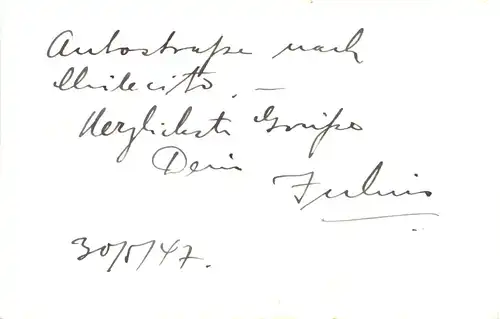 Autostraße nach
Chilecito. –
Herzlichste Grüße
Dein
Julius
30/5/47.